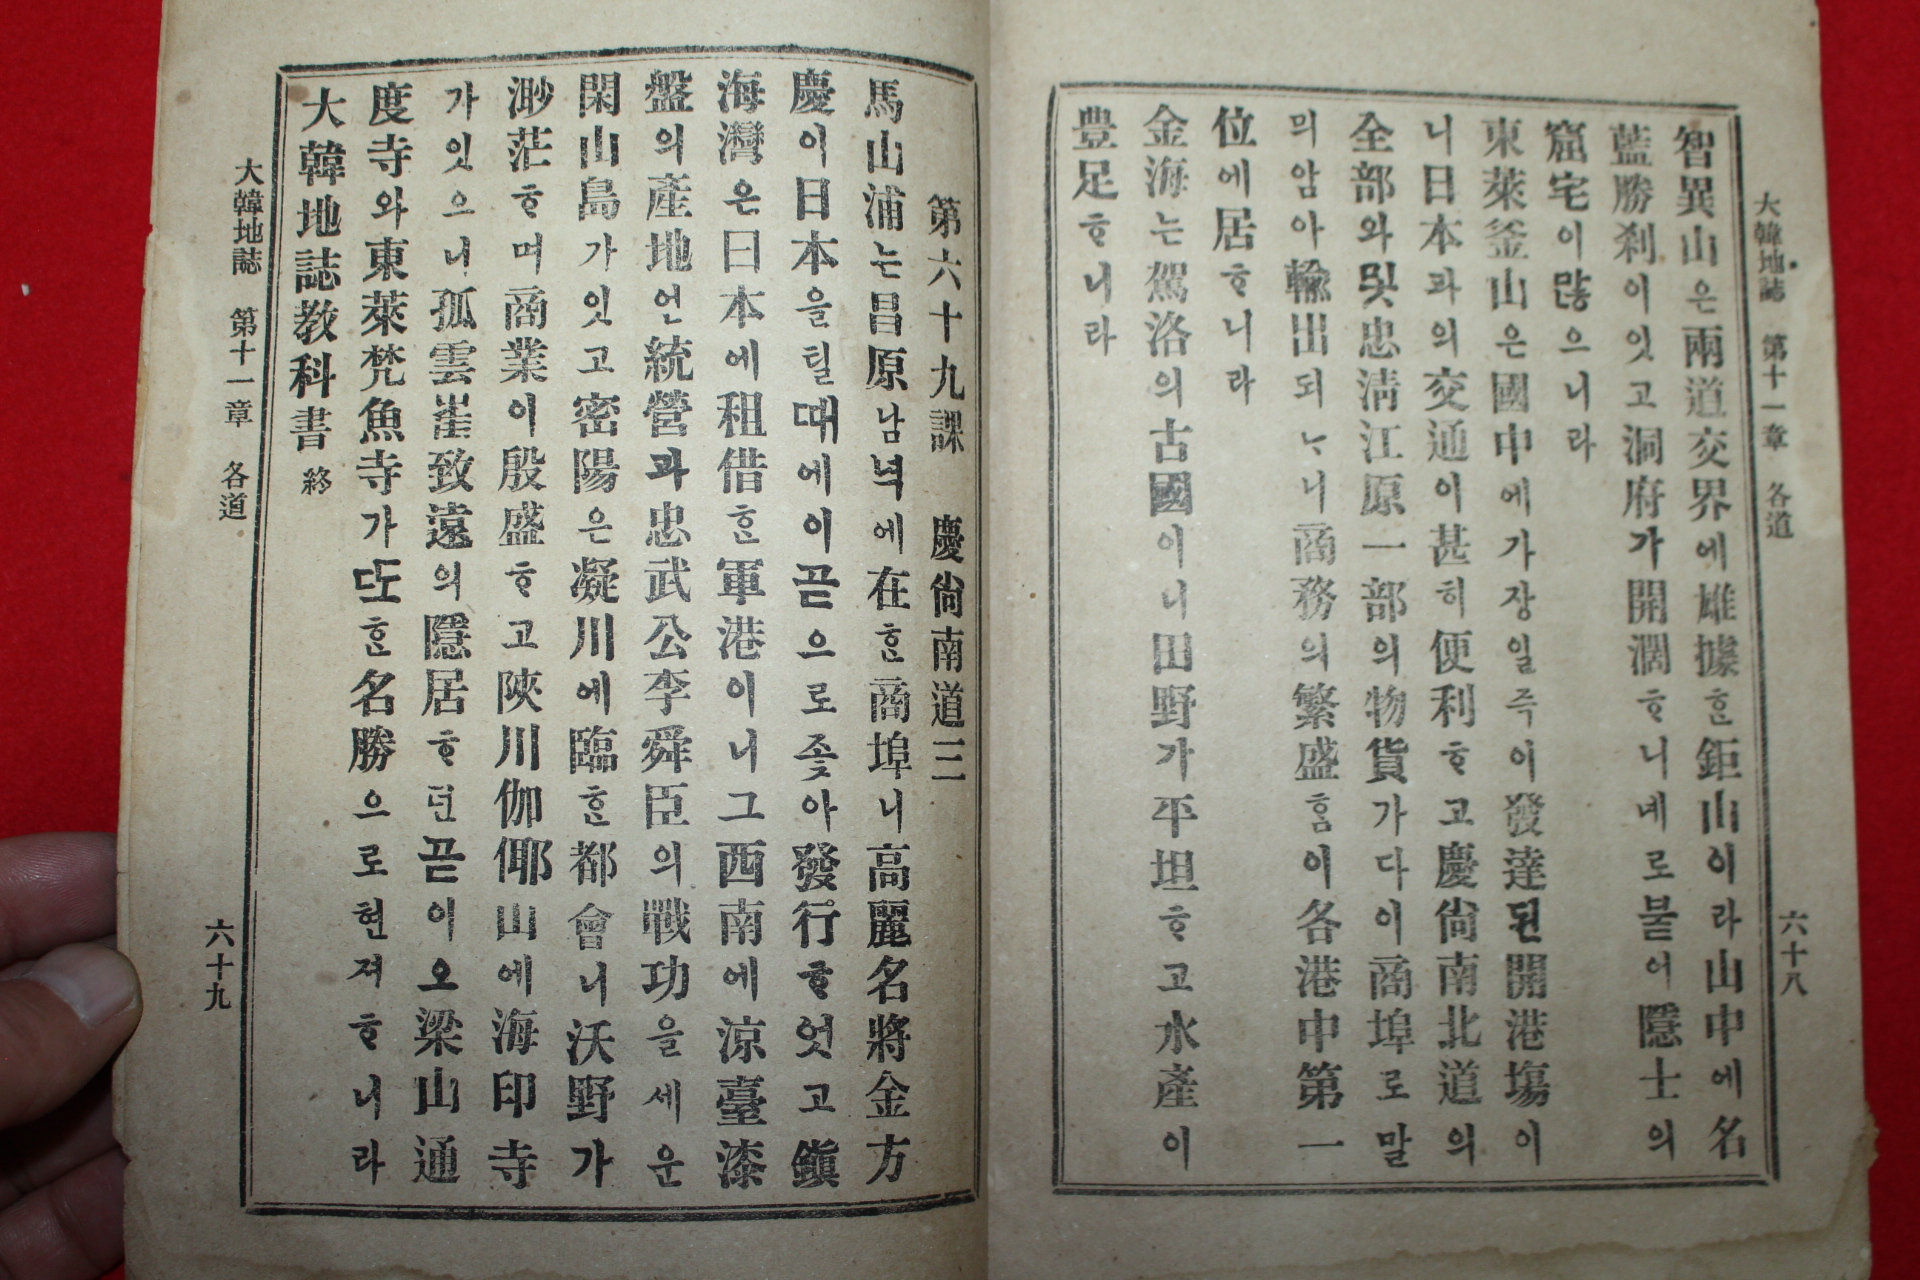 大韓地誌 第十一章 各道 六十八
智異山은兩道交界에雄據ᄒᆞᆫ鉅山이라山中에名
藍勝刹이잇고洞府가開濶ᄒᆞ니녜로붇어隱士의
窟宅이만흐니라
東萊釜山은國中에가장일즉이發達된開港塲이
니日本과의交通이甚히便利ᄒᆞ고慶尙南北道의
全部와및忠淸江原一部의物貨가다이商埠로말
믜암아輸出되ᄂᆞ니商務의繁盛ᄒᆞᆷ이各港中第一
位에居ᄒᆞ니라
金海는駕洛의古國이니田野가平坦ᄒᆞ고水產이
豊足ᄒᆞ니라
第六十九課 慶尙南道三
馬山浦는昌原남녁에在ᄒᆞᆫ商埠니高麗名將金方
慶이日本을틸때에이곧으로좇아發行ᄒᆞᆯ엇고鎭
海灣은日本에租借ᄒᆞᆫ軍港이니그西南에凉臺漆
盤의產地언統營과忠武公李舜臣의戰功을세운
閑山島가잇고密陽은凝川에臨ᄒᆞᆫ都會니沃野가
渺茫ᄒᆞ며商業이殷盛ᄒᆞ고陜川伽倻山에海印寺
가잇으니孤雲崔致遠의隱居ᄒᆞ던곧이오梁山通
度寺와東萊梵魚寺가ᄯᅩᄒᆞᆫ名勝으로현져ᄒᆞ니라
大韓地誌教科書 終
大韓地誌 第十一章 各道 六十九